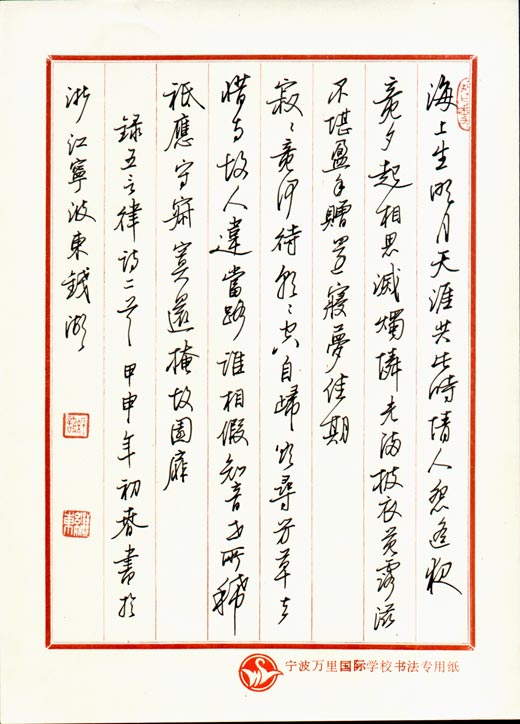 海上生明月天涯共此時情人怨遙夜
竟夕起相思滅燭憐光滿披衣覺露滋
不堪盈手贈還寢夢佳期
寂〻竟何待朝〻空自歸欲尋芳草去
惜与故人違當路誰相假知音世所稀
祇應守寂寞還掩故園扉
錄五言律詩二首 甲申年初春書於
浙江寧波東錢湖
宁波万里国际学校书法专用纸